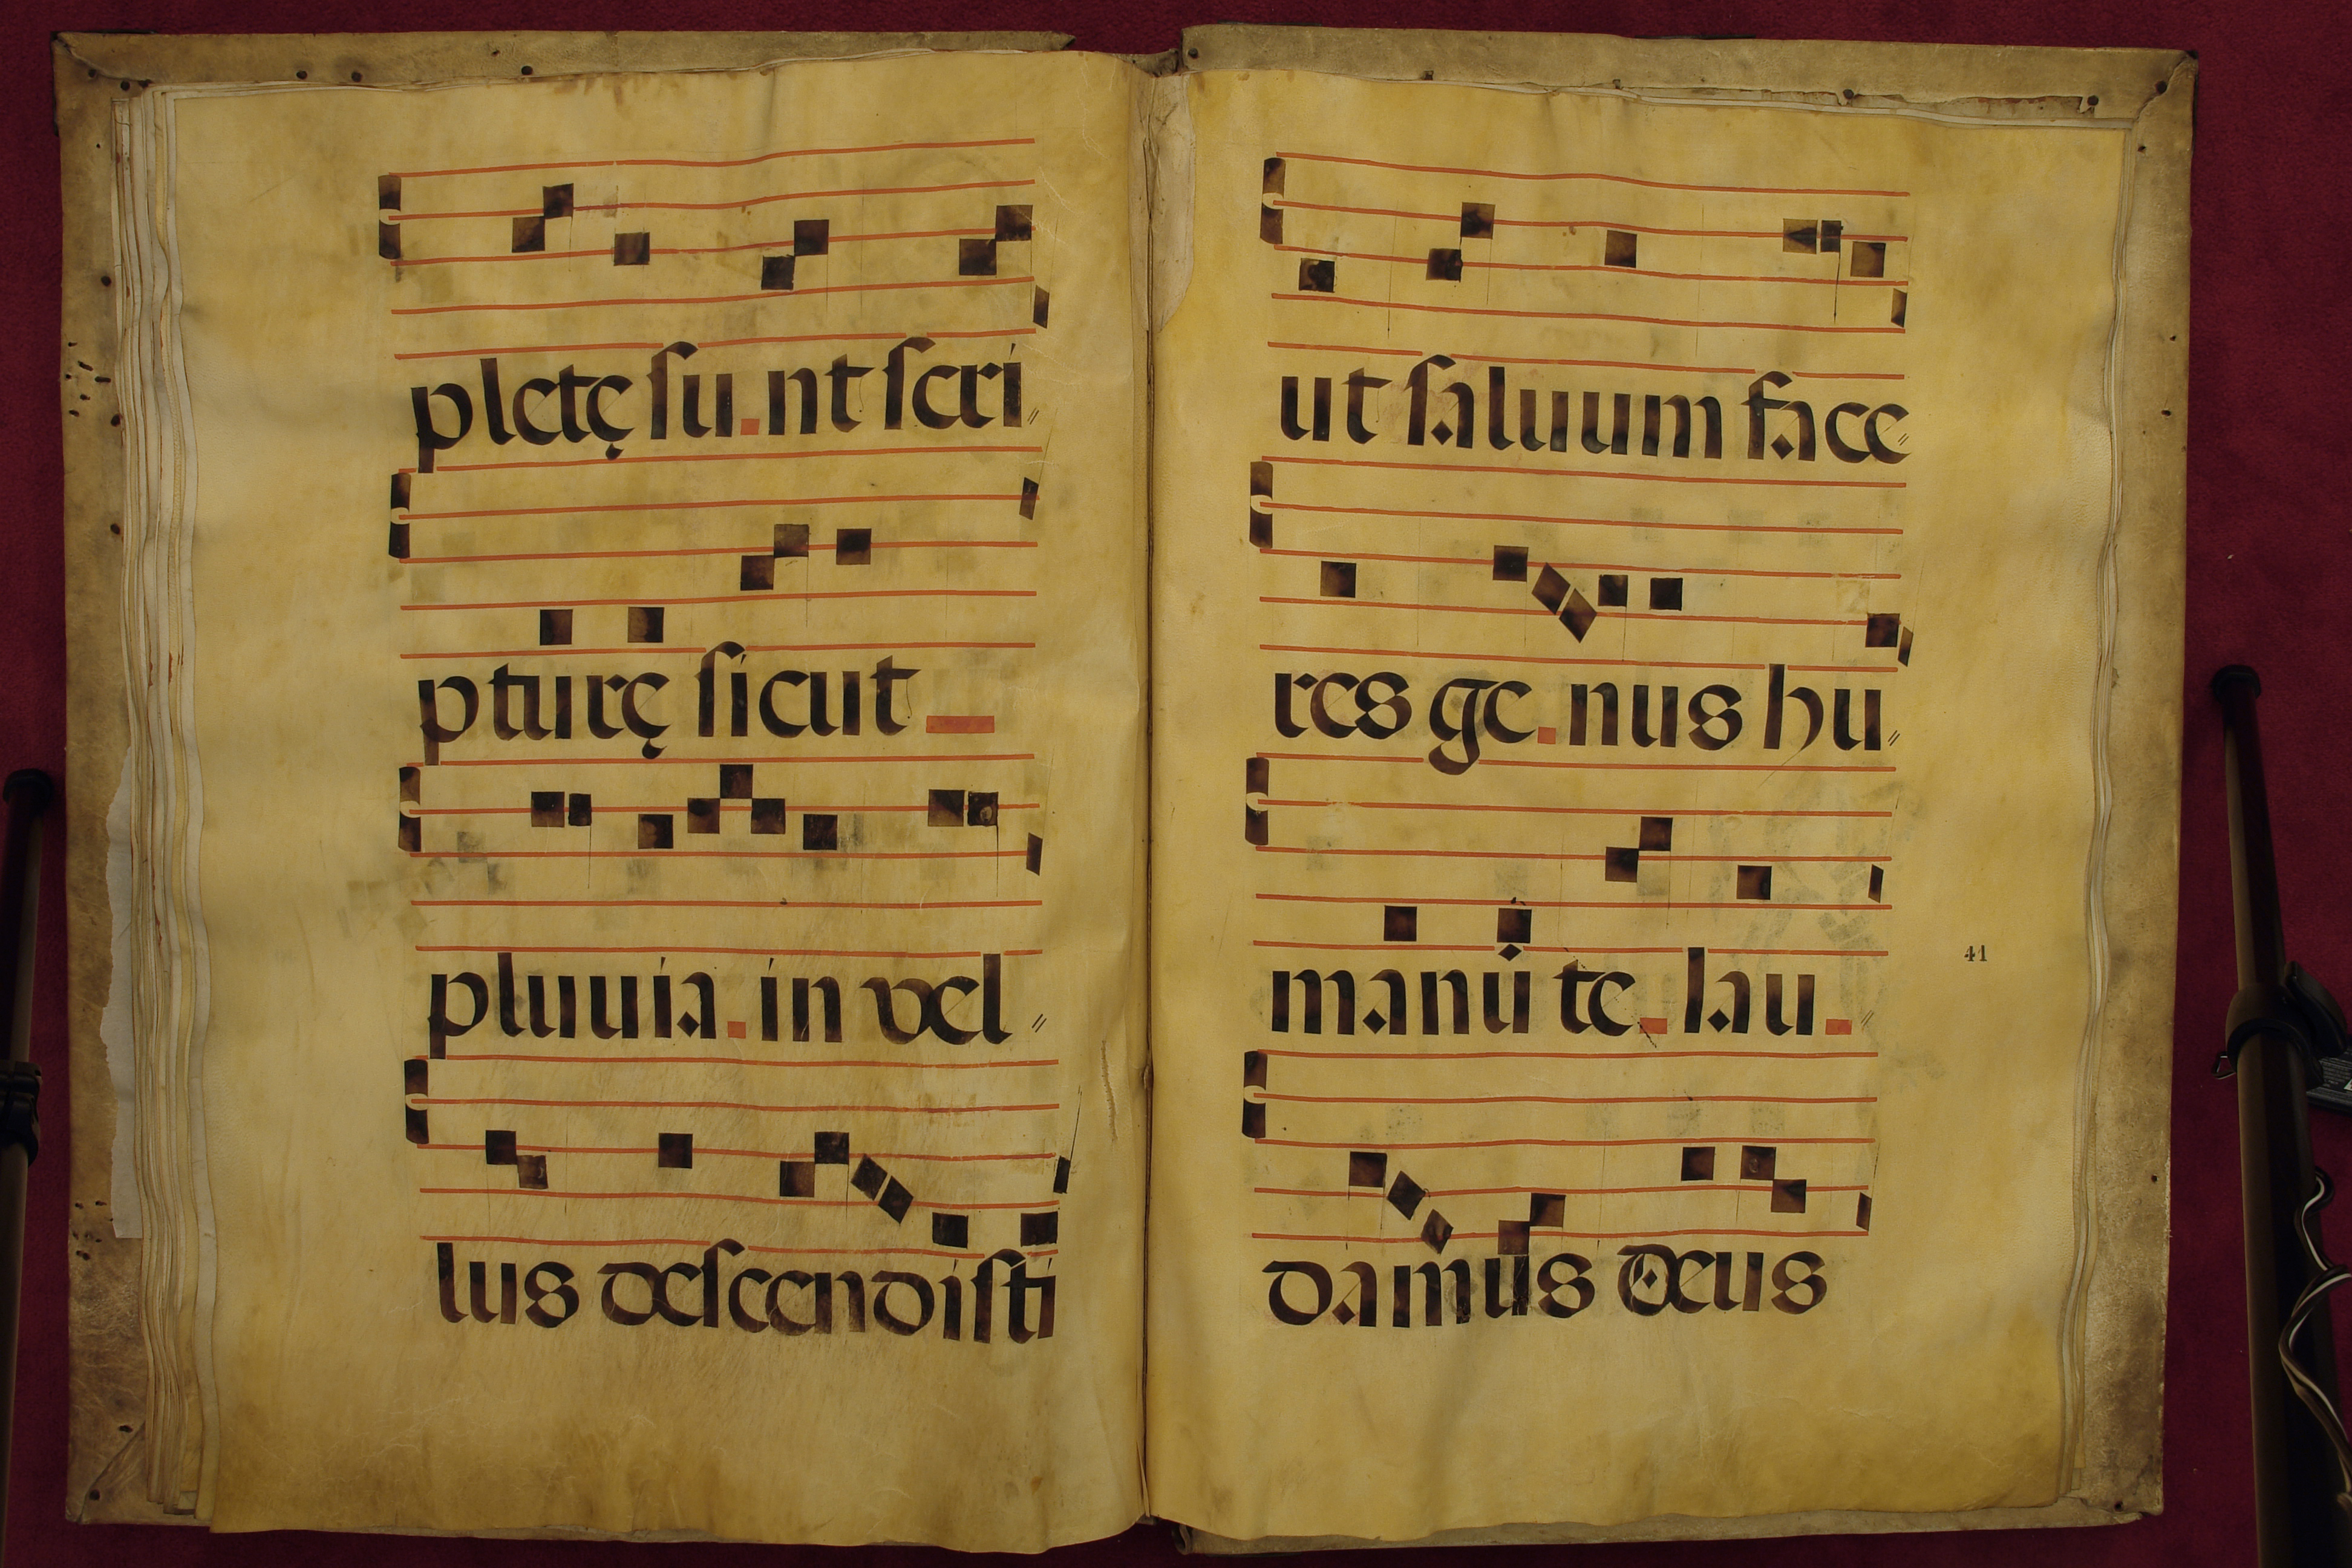 pletę su nt scri〃
pturę sicut
pluuia in vel〃
lus descendisti
ut saluum face〃
res ge nus hu〃
manū te lau
damus deus
41